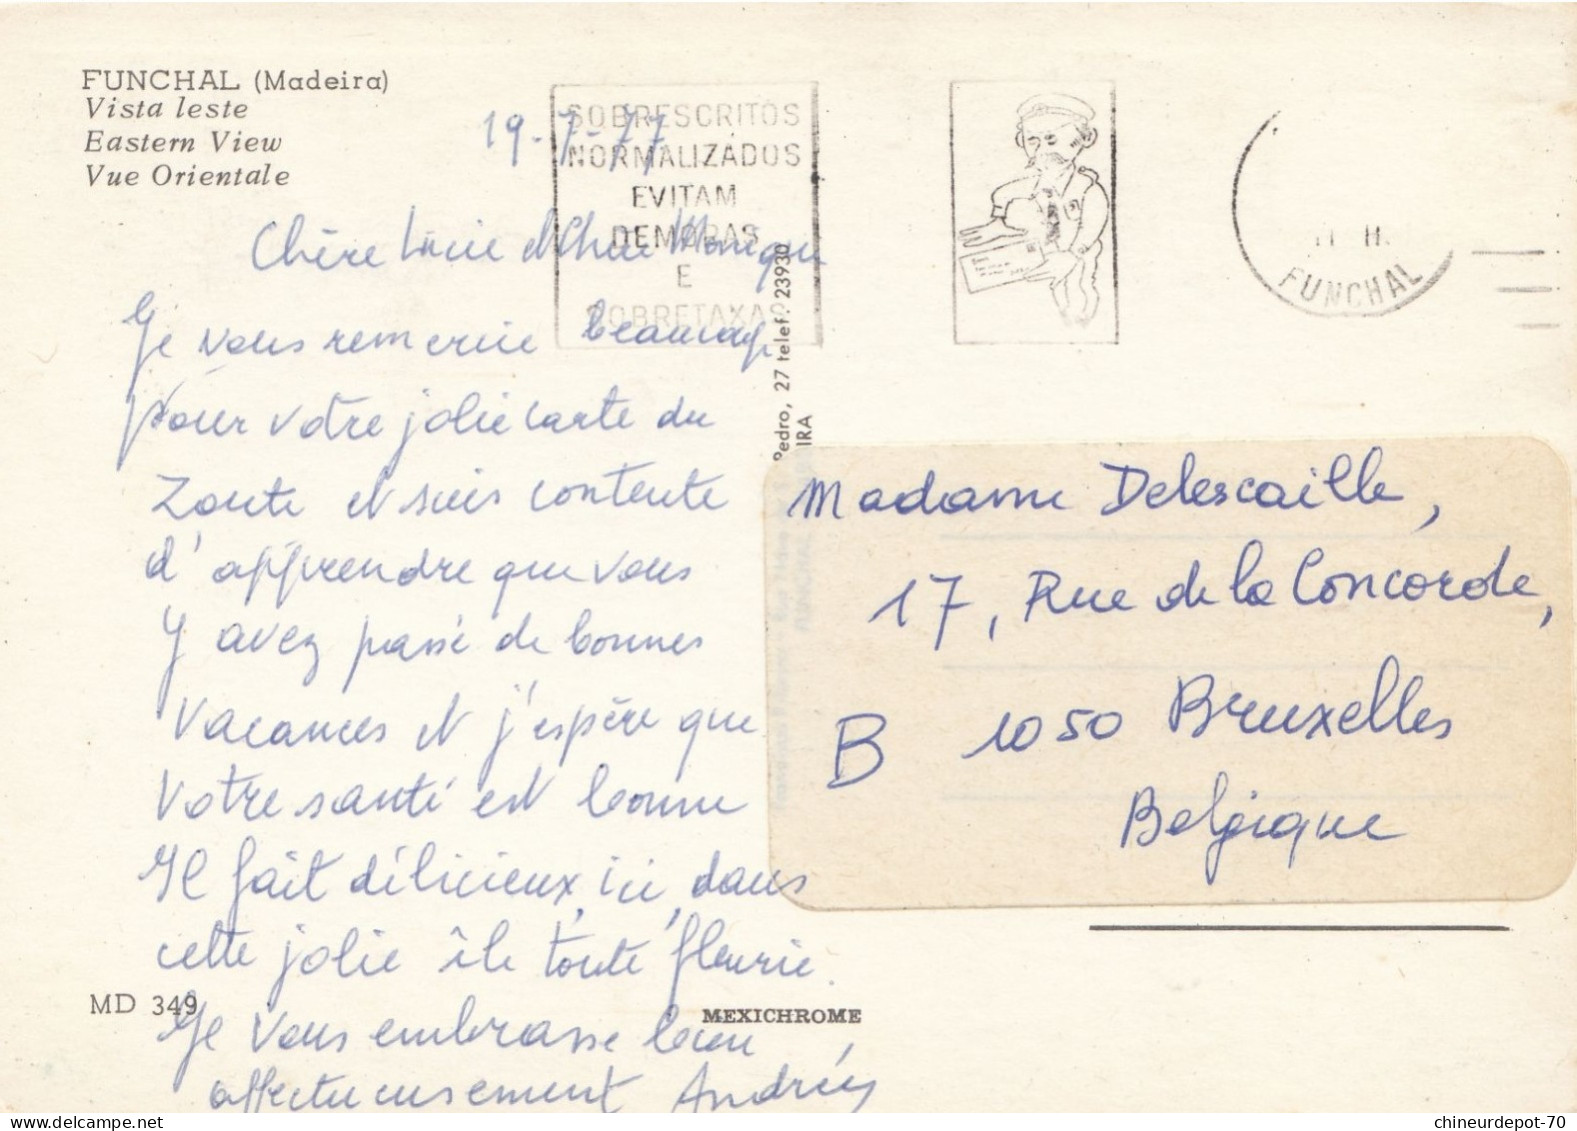 FUNCHAL (Madeira)
Vista leste
Eastern View
Vue Orientale
19-7-77
SOBRESCRITOS
NORMALIZADOS
EVITAM
DEMORAS
E
SOBRETAXAS
FUNCHAL
Chère Lucie et Chère Monique
Je vous remercie beaucoup
pour votre jolie carte du
Zoute et suis contente
d'apprendre que vous
y avez passé de bonnes
vacances et j'espère que
votre santé est bonne
Il fait délicieux, ici, dans
cette jolie île toute fleurie.
Je vous embrasse bien
affectueusement Andrée
Pedro, 27 telef. 23930
Madame Delescaille,
17, Rue de la Concorde,
B 1050 Bruxelles
Belgique
MD 349
MEXICHROME
delcampe.net
chineurdepot-70